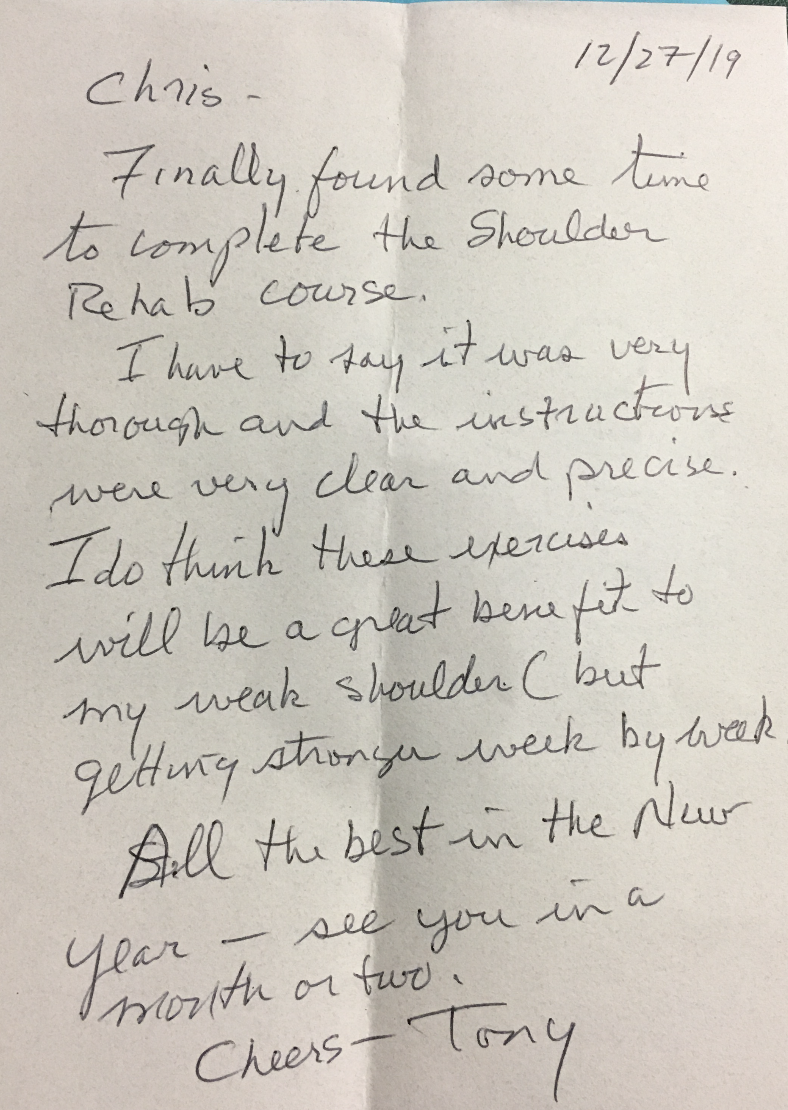 12/27/19
Chris -
Finally found some time
to complete the Shoulder
Rehab course.
I have to say it was very
thorough and the instructions
were very clear and precise.
I do think these exercises
will be a great benefit to
my weak shoulder ( but
getting stronger week by week
All the best in the New
year — see you in a
month or two.
Cheers — Tony